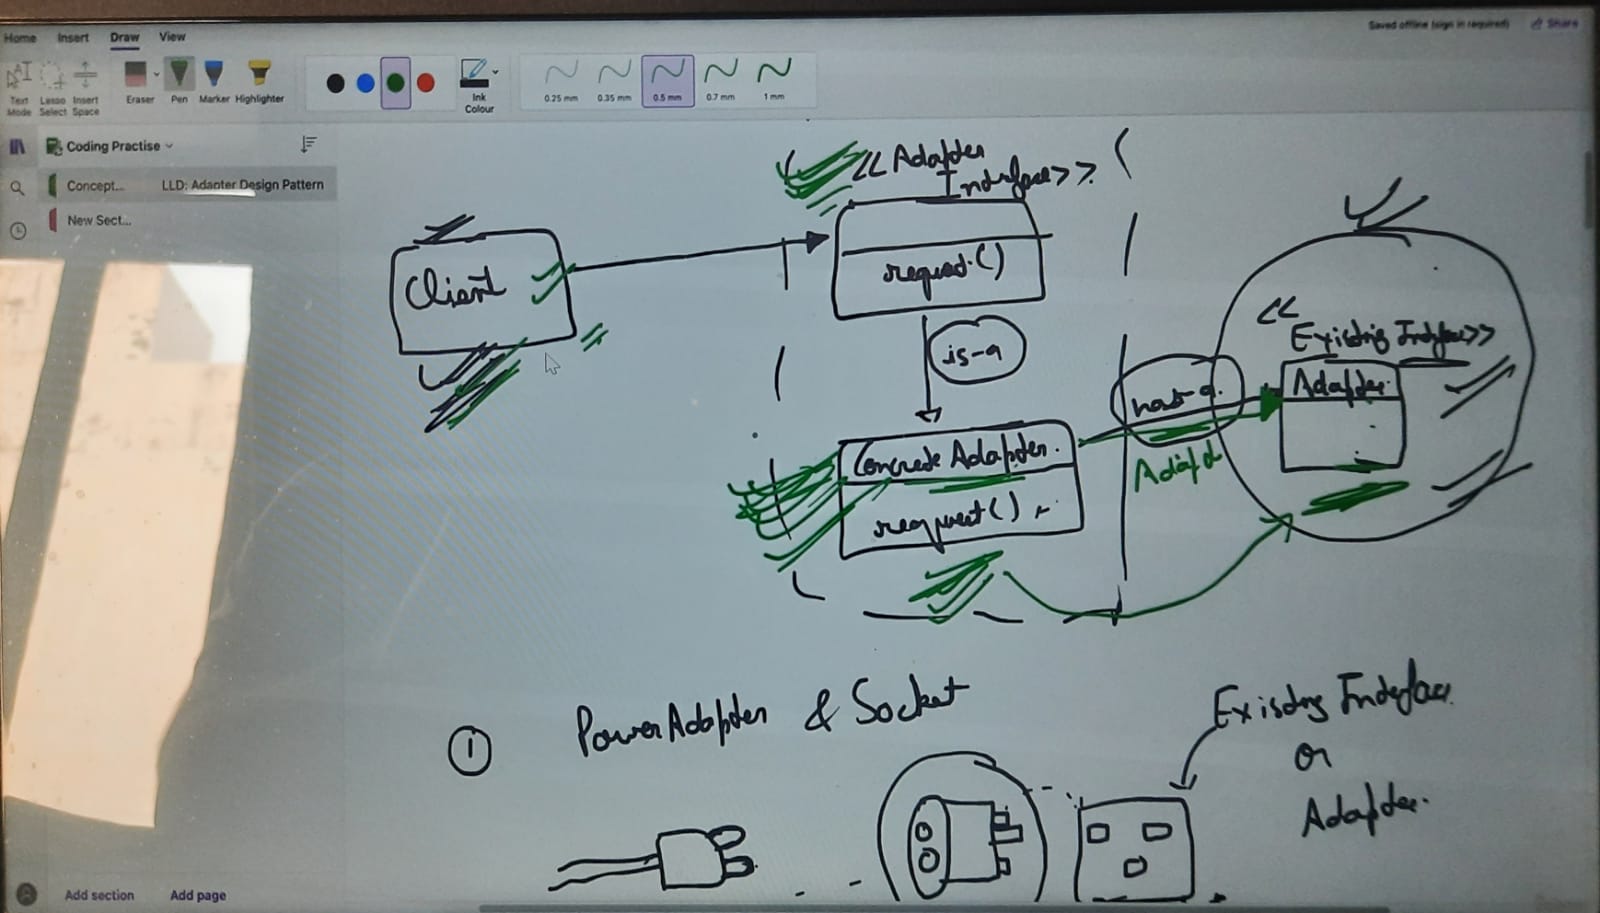 Home Insert Draw View
Saved offline (sign in required) Share
Text Mode
Lasso Select
Insert Space
Eraser
Pen
Marker
Highlighter
Ink Colour
0.25 mm
0.35 mm
0.5 mm
0.7 mm
1 mm
Coding Practise
Concept... LLD: Adapter Design Pattern
New Sect...
<< Adapter
Interface >>
request()
Client
is-a
<<
Existing Interface>>
has-a
Adaptee
Concrete Adapter
request()
① Power Adapter & Socket
Existing Interface
or
Adaptee
Add section Add page